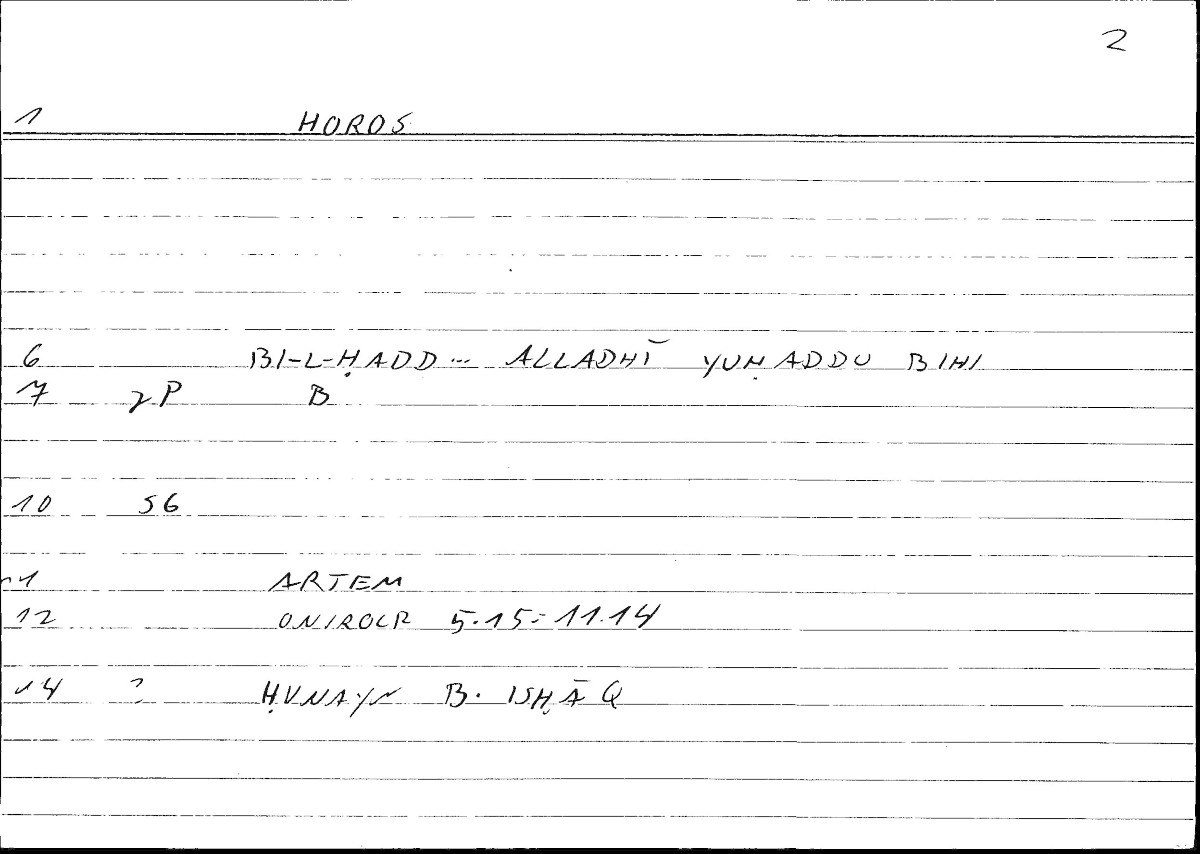 2
1 HOROS
6 BI-L-ḤADD... ALLADHĪ YUḤADDU BIHI
7 γP B
10 SG
11 ARTEM
12 ONIROCR 5.15 = 11.14
14 ? ḤUNAYN B. ISḤĀQ